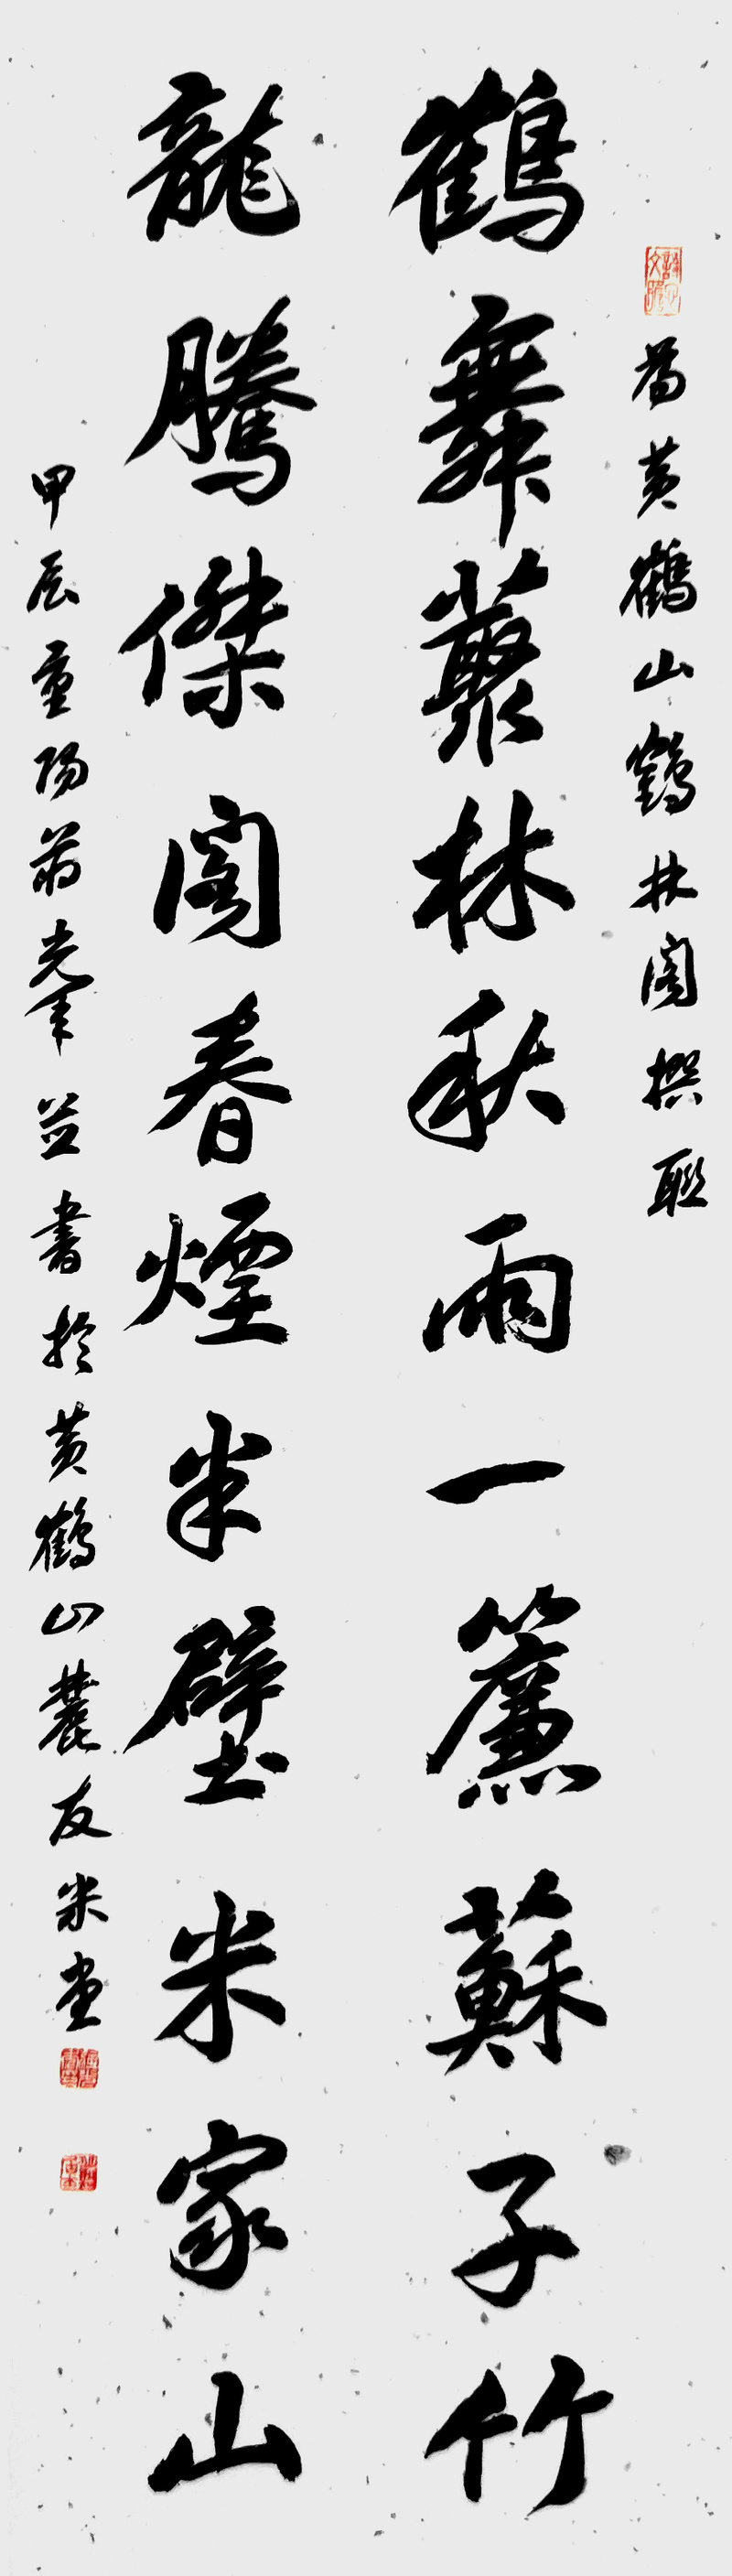 為黃鶴山鶴林閣撰聯
鶴舞叢林秋雨一簾蘇子竹
龍騰傑閣春煙半壁米家山
甲辰重陽翁光峯並書於黃鶴山麓友米堂